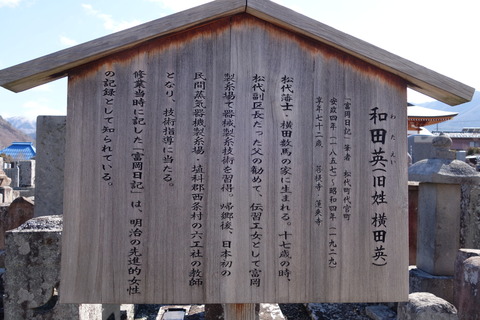 わだ えい
和田英(旧姓 横田英)
「富岡日記」筆者 松代町代官町
安政四年(一八五七)-昭和四年(一九二九)
享年七十二歳
松代藩士・横田数馬の家に生まれる。十七歳の時、
松代副区長だった父の勧めで、伝習工女として富岡
製糸場で器械製糸技術を習得。帰郷後、日本初の
民間蒸気器機製糸場・埴科郡西条村の六工社の教師
となり、技術指導に当たる。
修業当時に記した「富岡日記」は、明治の先進的女性
の記録として知られている。